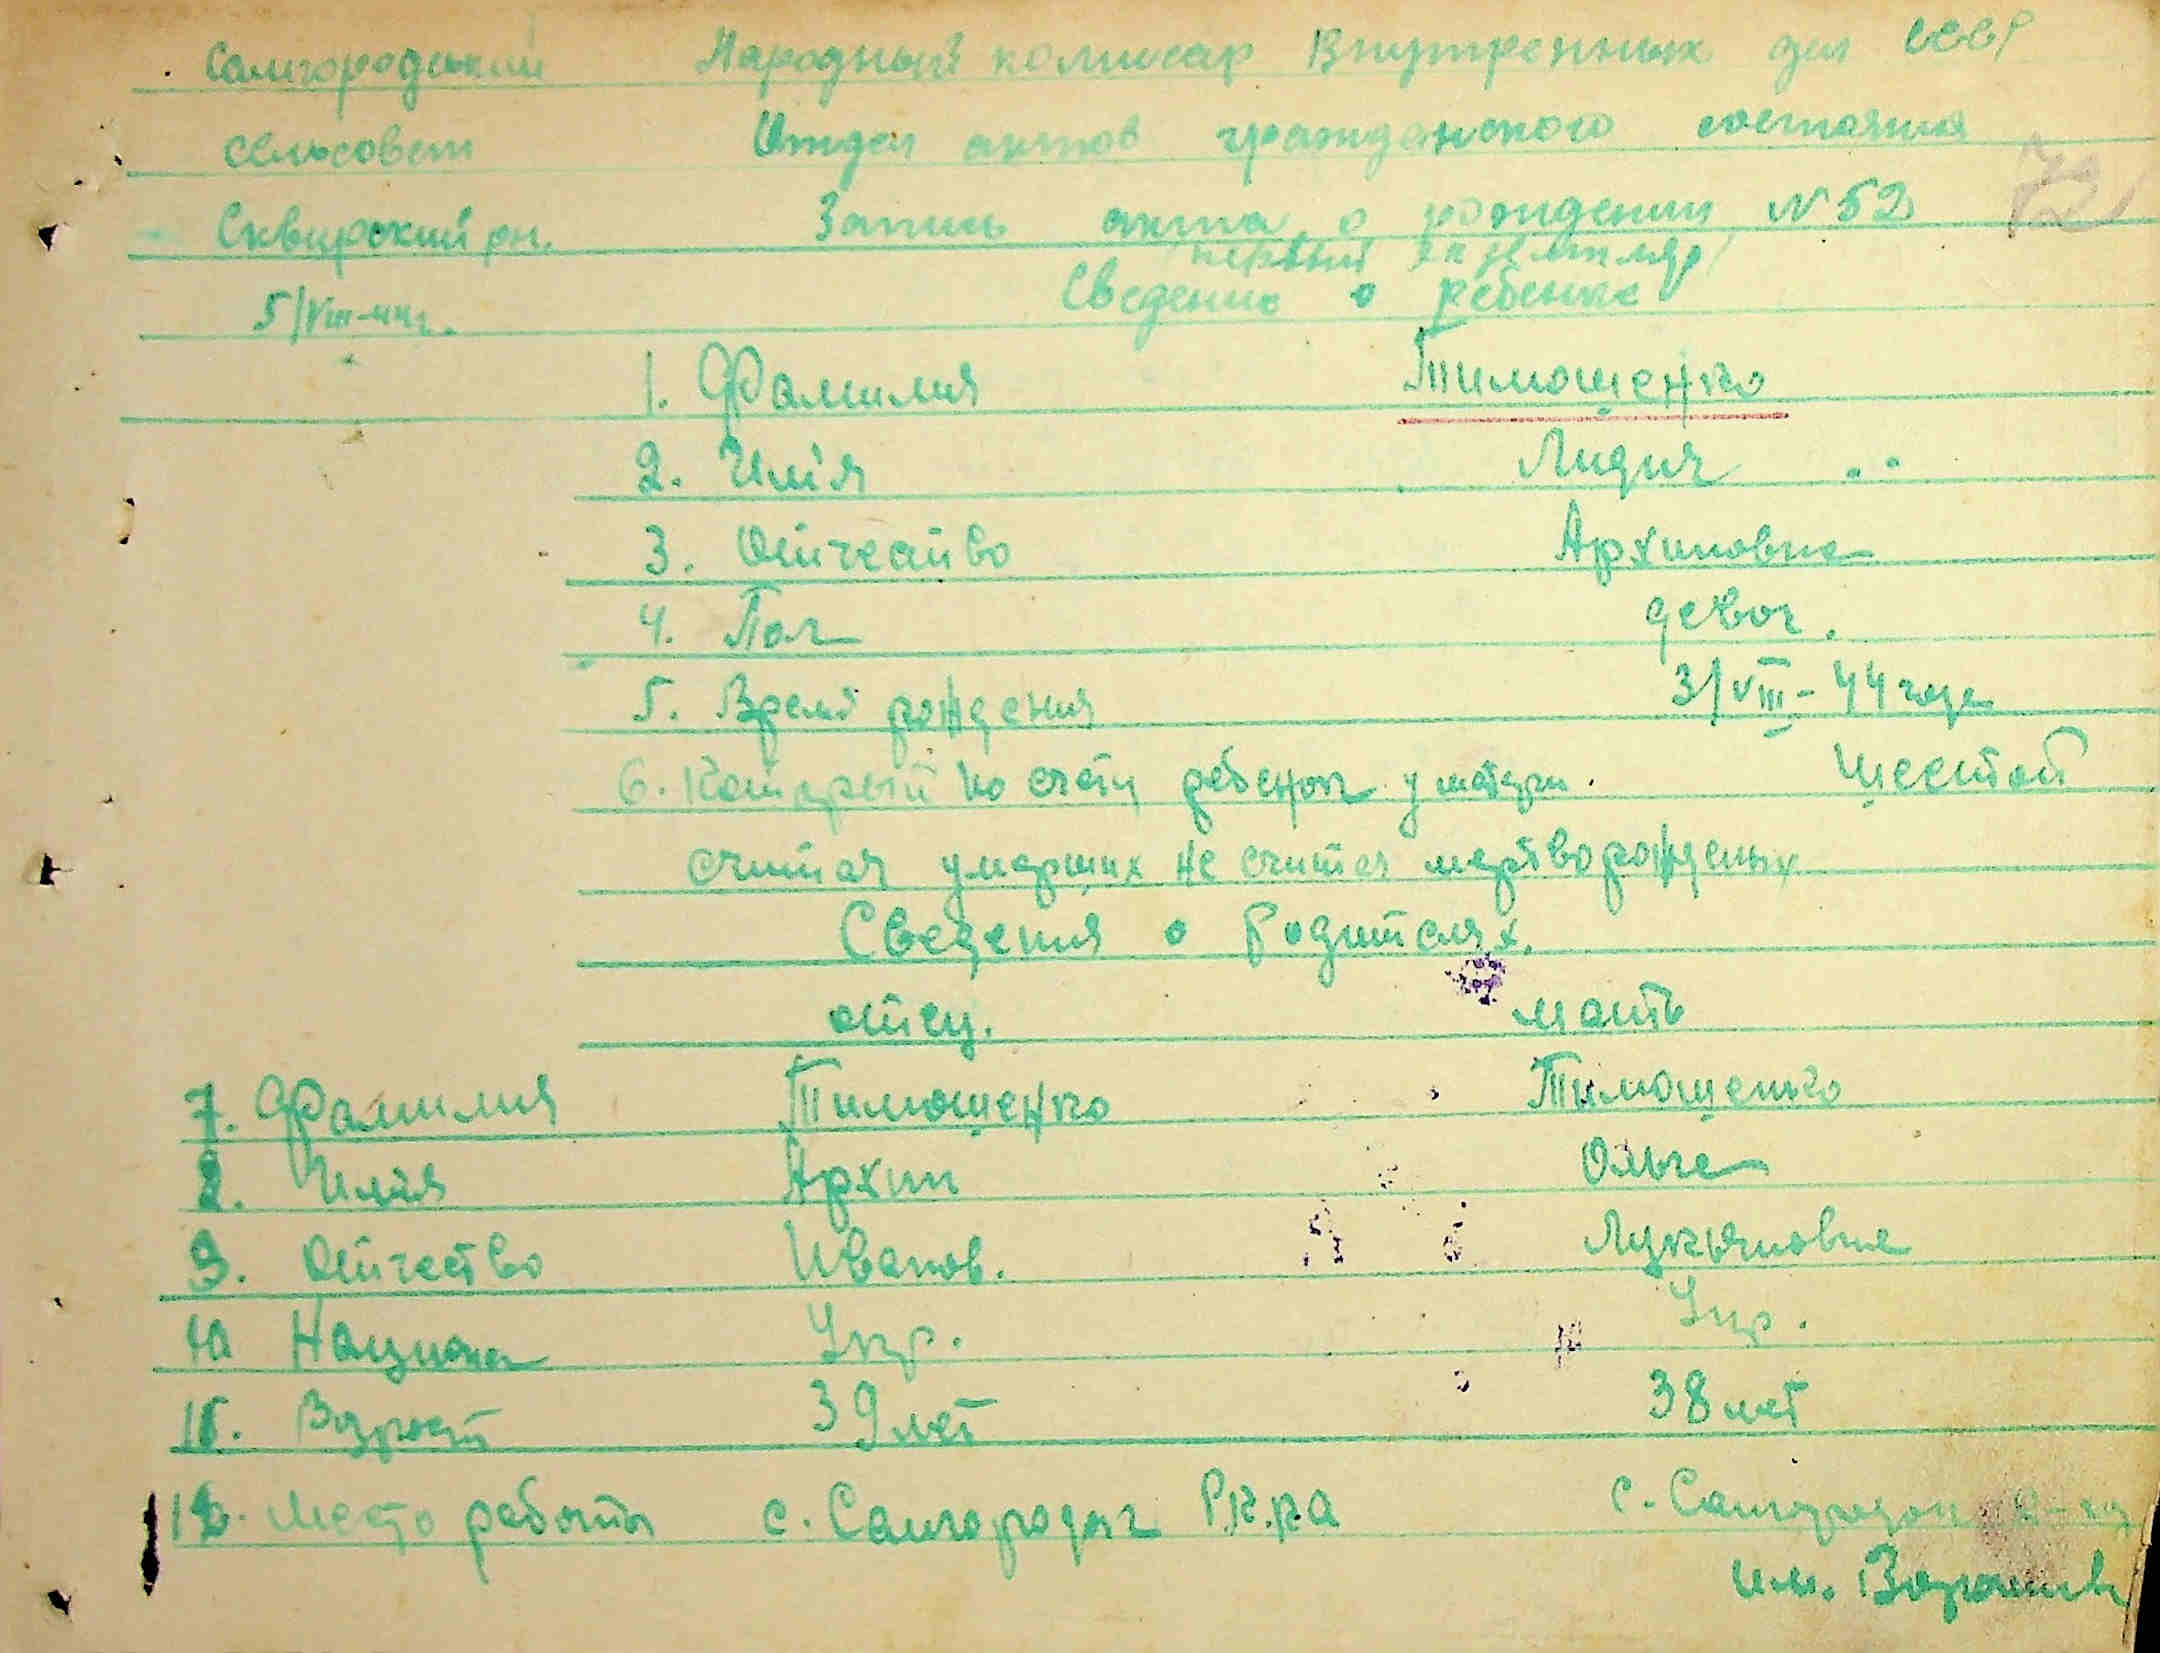 Самгородский Народный комисар Внутренных дел СССР
сельсовет Отдел актов гражданского состояния
Сквирский рн. Запись акта о рождении N 52
/первый экземпляр/
5/VIII-44г. Сведение о ребенке
1. Фамилия Тимошенко
2. Имья Лидия
3. Отчество Архиповна
4. Пол девоч.
5. Время рождения 3/VIII-44 года
6. Который по счету ребенок у матери. шестой
считая умерших не считая мертворожденых
Сведения о Родителях.
отец. мать
7. Фамилия Тимошенко Тимошенко
8. Имья Архип Ольга
9. Отчество Иванов. Лукъяновна
10 Национал Укр. Укр.
11. Возраст 39 лет 38 лет
12. Место работы с. Самгородок Р.К.К.А с. Самгородок к-з
им. Ворошил